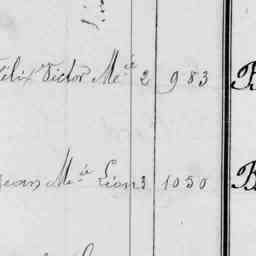 Félix Victor M.ie 2 983 B
Jean M.ie Léon 3 1050 B